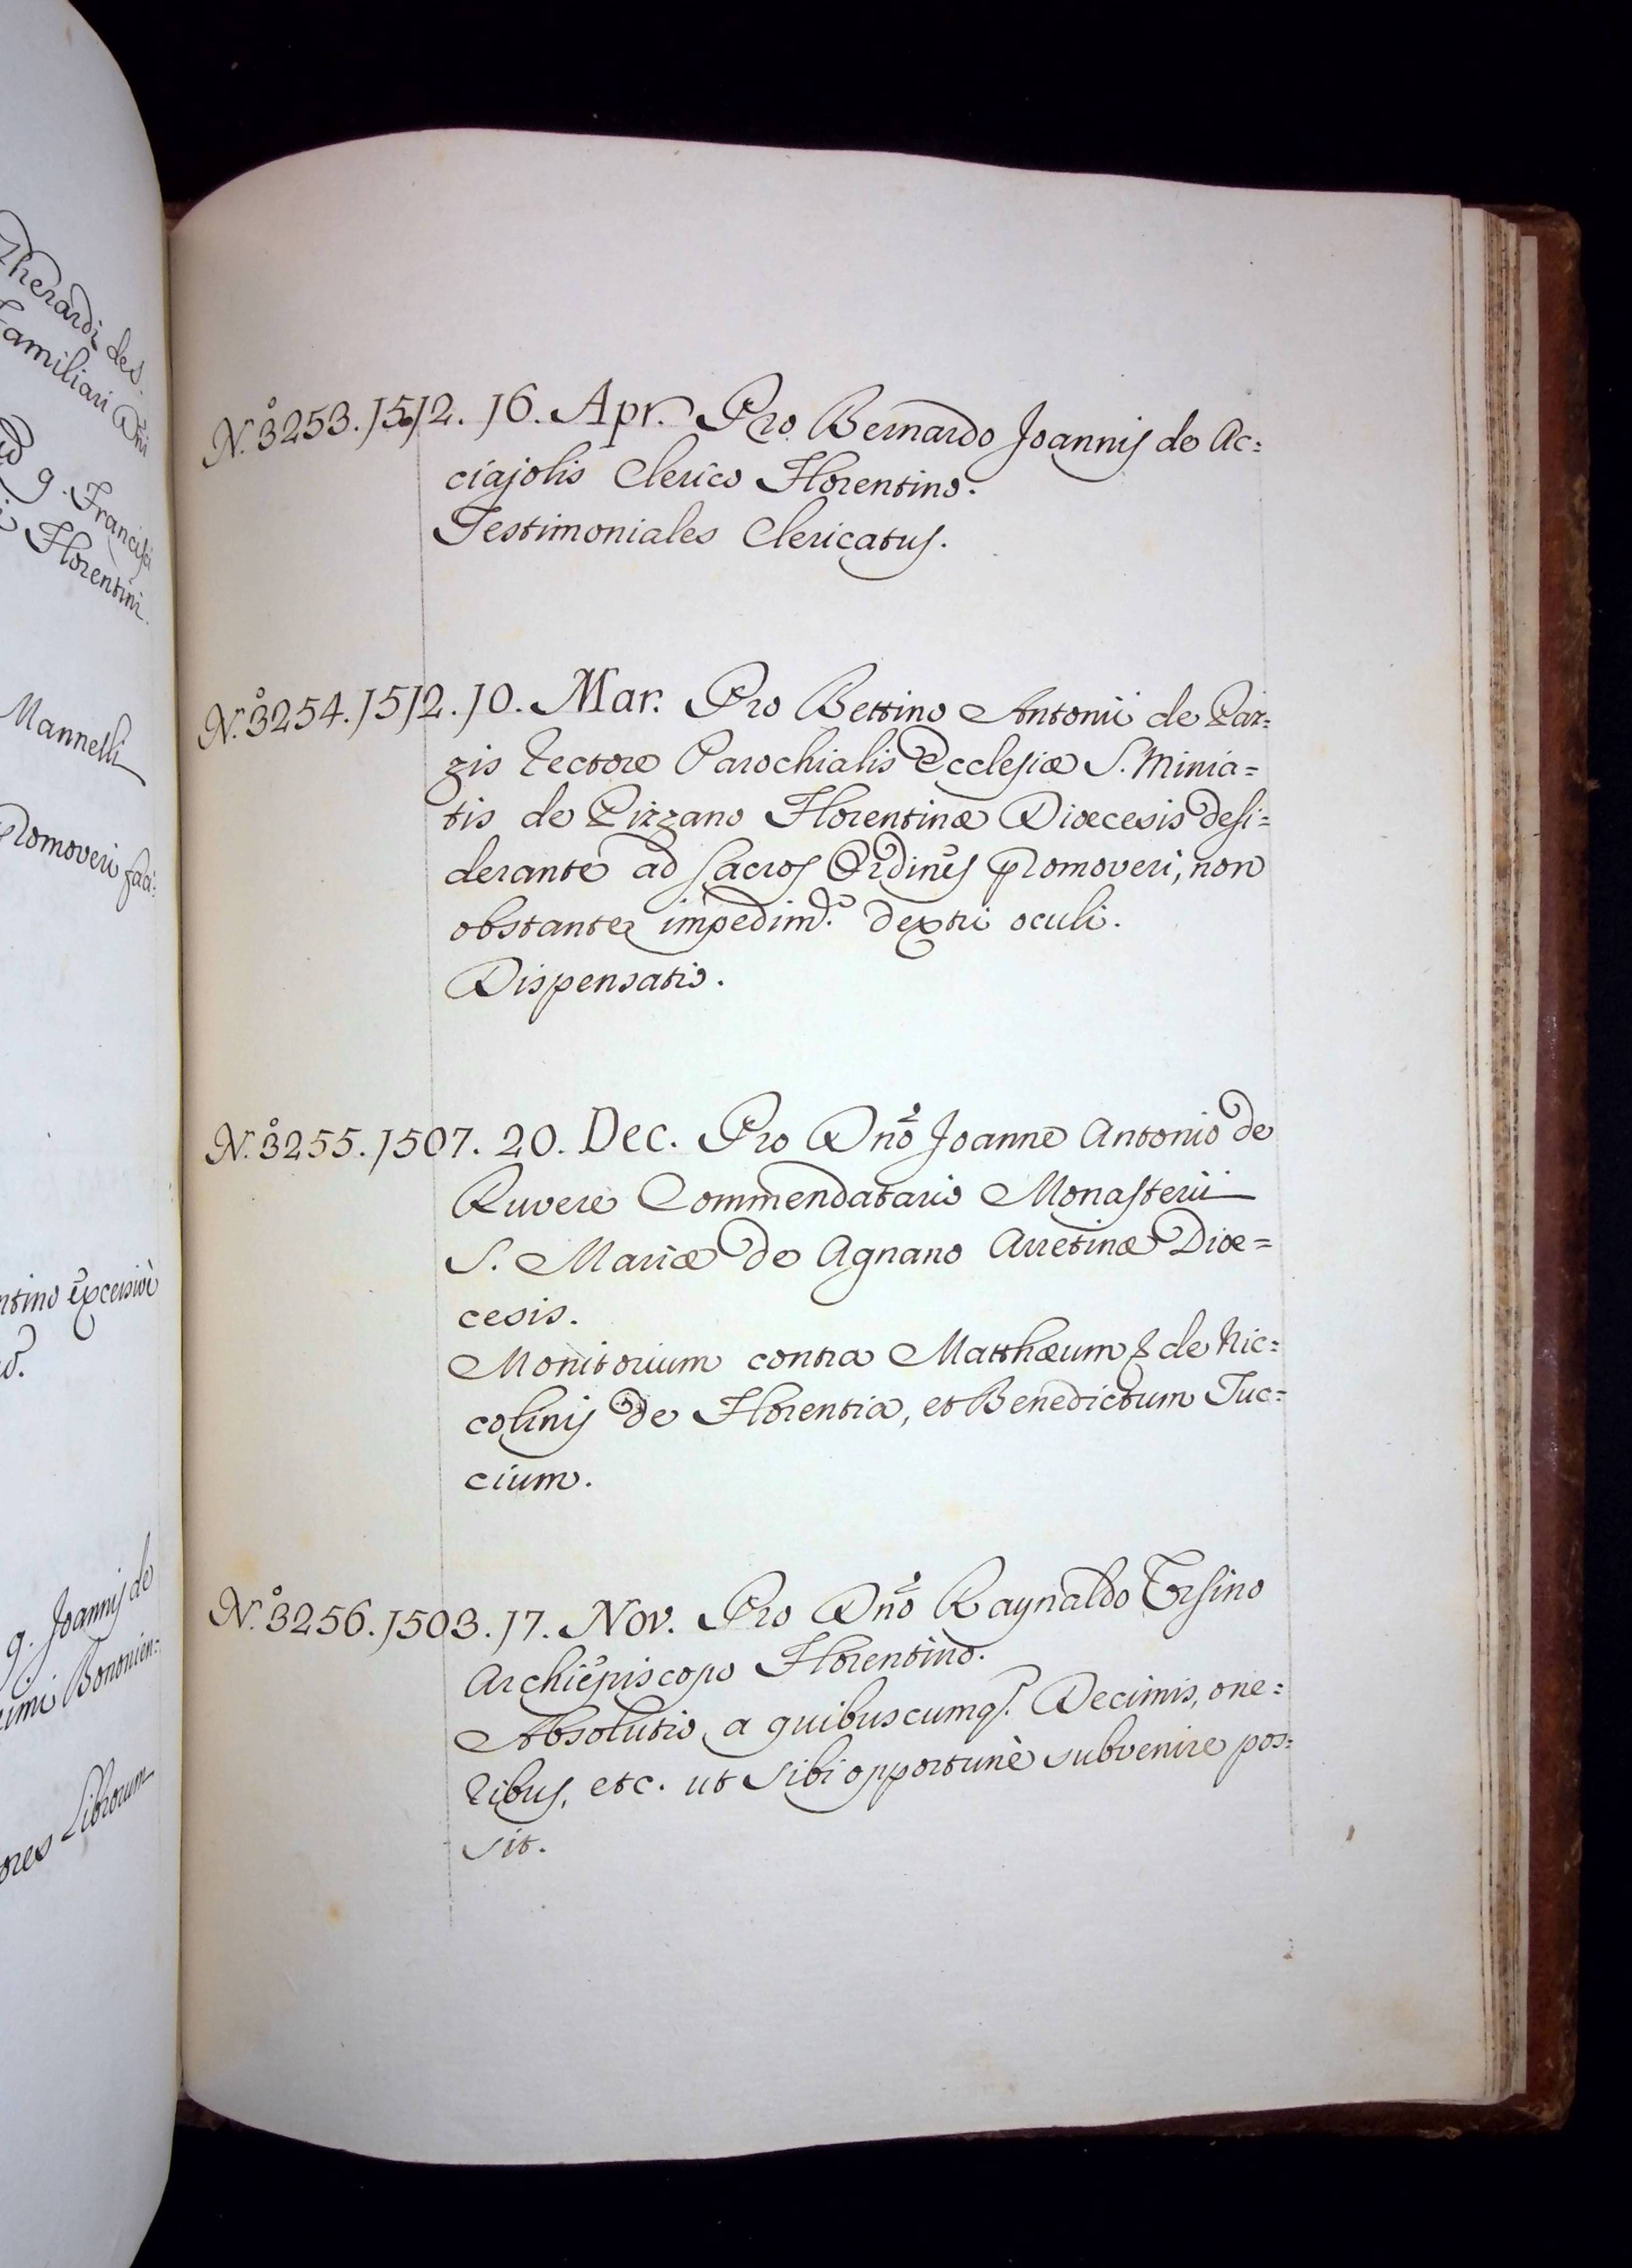 Gherardi des.
Familiari Dñi
g. Francisci
Florentini.
Mannelli
Promoveri faci:
ntino excessivè
g. Joannis de
Bononien:
ores Librorum
N.º 3253. 1512. 16. Apr. Pro Bernardo Joannis de Ac:
ciajolis Clerico Florentino.
Testimoniales Clericatus.
N.º 3254. 1512. 10. Mar. Pro Bettino Antonii de
zis Rectore Parochialis Ecclesiæ S. Minia=
tis de Florentinæ Diœcesis desi=
derante ad Sacros Ordines promoveri, non
obstante impedim.º dextri oculi.
Dispensatio.
N.º 3255. 1507. 20. Dec. Pro Dnõ Joanne Antonio de
Ruvere Commendatario Monasterii
S. Mariæ de Agnano Arretinæ Diœ=
cesis.
Monitorium contra Matthæum de Nic:
colinis de Florentia, et Benedictum Tuc=
cium.
N.º 3256. 1503. 17. Nov. Pro Dnõ Raynaldo Ursino
Archiepiscopo Florentino.
Absolutio a quibuscumq. Decimis, one:
ribus, etc. ut sibi opportunè subvenire pos:
sit.